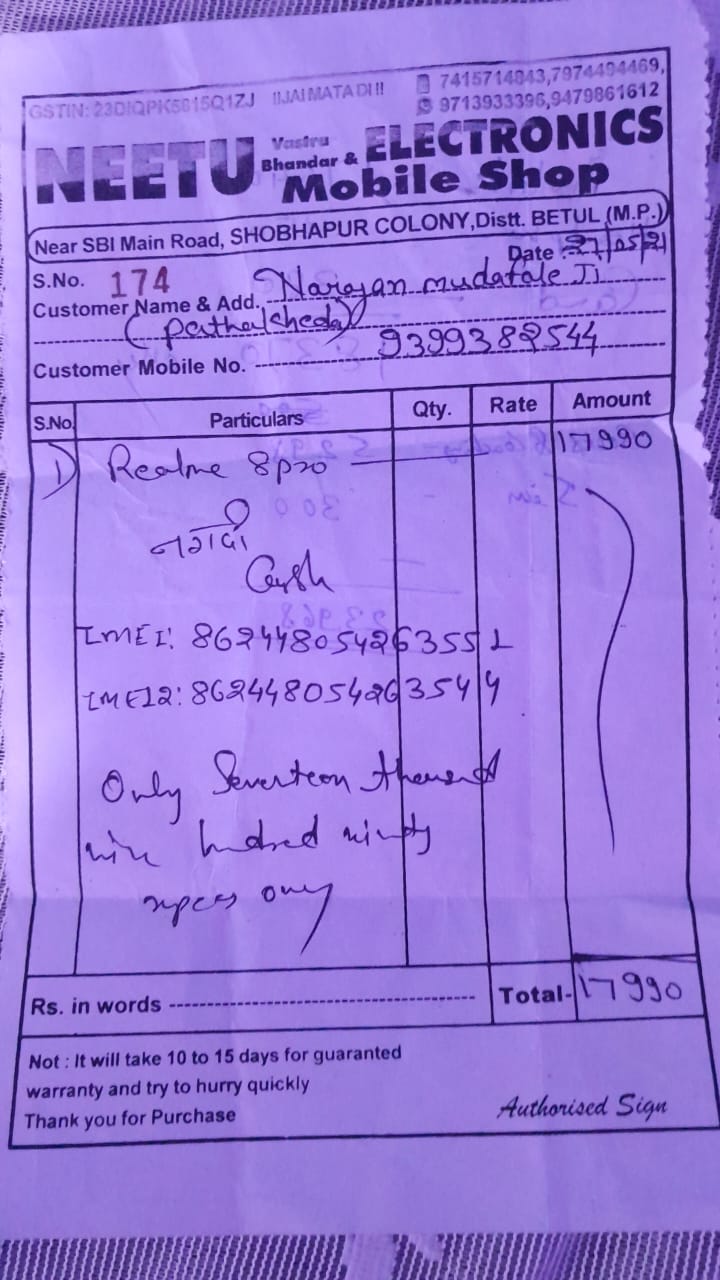 GSTIN: 23DIQPK5815Q1ZJ !!JAI MATA DI!! 7415714843,7974494469,
9713933396,9479861612
NEETU Vastra Bhandar & ELECTRONICS
Mobile Shop
Near SBI Main Road, SHOBHAPUR COLONY,Distt. BETUL (M.P.)
S.No. 174 Date :- 27/05/21
Customer Name & Add. Narayan mudafale Ji
(Patharkheda)
Customer Mobile No. 9399382544
S.No. Particulars Qty. Rate Amount
1) Realme 8pro 17990
नगदी
Cash
IMEI: 862448054263551
IMEI2: 862448054263544
Only Seventeen thousand
nine hundred ninty
rupees only
Rs. in words Total- 17990
Not : It will take 10 to 15 days for guaranted
warranty and try to hurry quickly
Thank you for Purchase
Authorised Sign